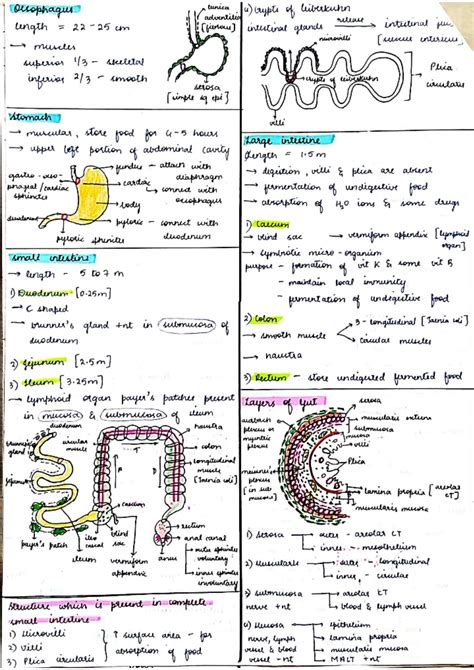 Oesophagus
length = 22 - 25 cm
→ muscles
superior 1/3 - skeletal
inferior 2/3 - smooth
tunica
adventitia
[fibrous]
serosa
[simple sq epi]
Stomach
→ muscular, store food for 4-5 hours
→ upper left portion of abdominal cavity
fundus - attach with
diaphragm
cardiac - connect with
oesophagus
body
pyloric - connect with
duodenum
gastro-oeso-
phageal/cardiac
sphincter
duodenum
pyloric sphincter
small intestine
→ length - 5 to 7 m
1) Duodenum [0.25m]
→ C shaped
→ brunner's gland +nt in submucosa of
duodenum
2) Jejunum [2.5m]
3) Ileum [3.25m]
→ lymphoid organ payer's patches present
in mucosa & submucosa of ileum
duodenum
brunner's
gland
jejunum
payer's patch
ileum
ileo
caecal
caecum
blind
sac
vermiform
appendix
circular
muscle
haustra
colon
longitudinal
muscle
[taenia coli]
rectum
anal canal
anus
outer sphincter
voluntary
inner sphincter
involuntary
Structure which is present in complete
small intestine
1) Microvilli
2) Villi
3) Plica circularis
↑ surface area - for
absorption of food
4) crypts of leiberkuhn
intestinal glands
release
intestinal
[succus entericus]
microvilli
crypts of leiberkuhn
villi
Plica
circularis
Large intestine
Length = 1.5m
→ digestion, villi & plica are absent
→ fermentation of undigestive food
→ absorption of H2O ions & some drugs
1) Caecum
→ blind sac → vermiform appendix [lymphoid
organ]
→ symbiotic micro-organism
purpose - formation of vit K & some vit B
- maintain local immunity
- fermentation of undigestive food
2) Colon
→ smooth muscle
3 - longitudinal [Taenia coli]
circular muscles
→ haustra
3) Rectum - store undigested fermented food
Layers of Gut
serosa
muscularis externa
submucosa
mucosa
villi
Plica
lamina propria [areolar
CT]
muscularis mucosa
plexus or
plexus
plexus
[in sub
mucosa]
1) serosa
outer - areolar CT
inner - mesothelium
2) Muscularis
outer - longitudinal
inner - circular
3) submucosa
nerve +nt
areolar CT
blood & lymph vessel
4) Mucosa
nerve, lymph
vessel and blood
vessel -nt
epithelium
lamina propria
muscularis mucosa
MALT +nt